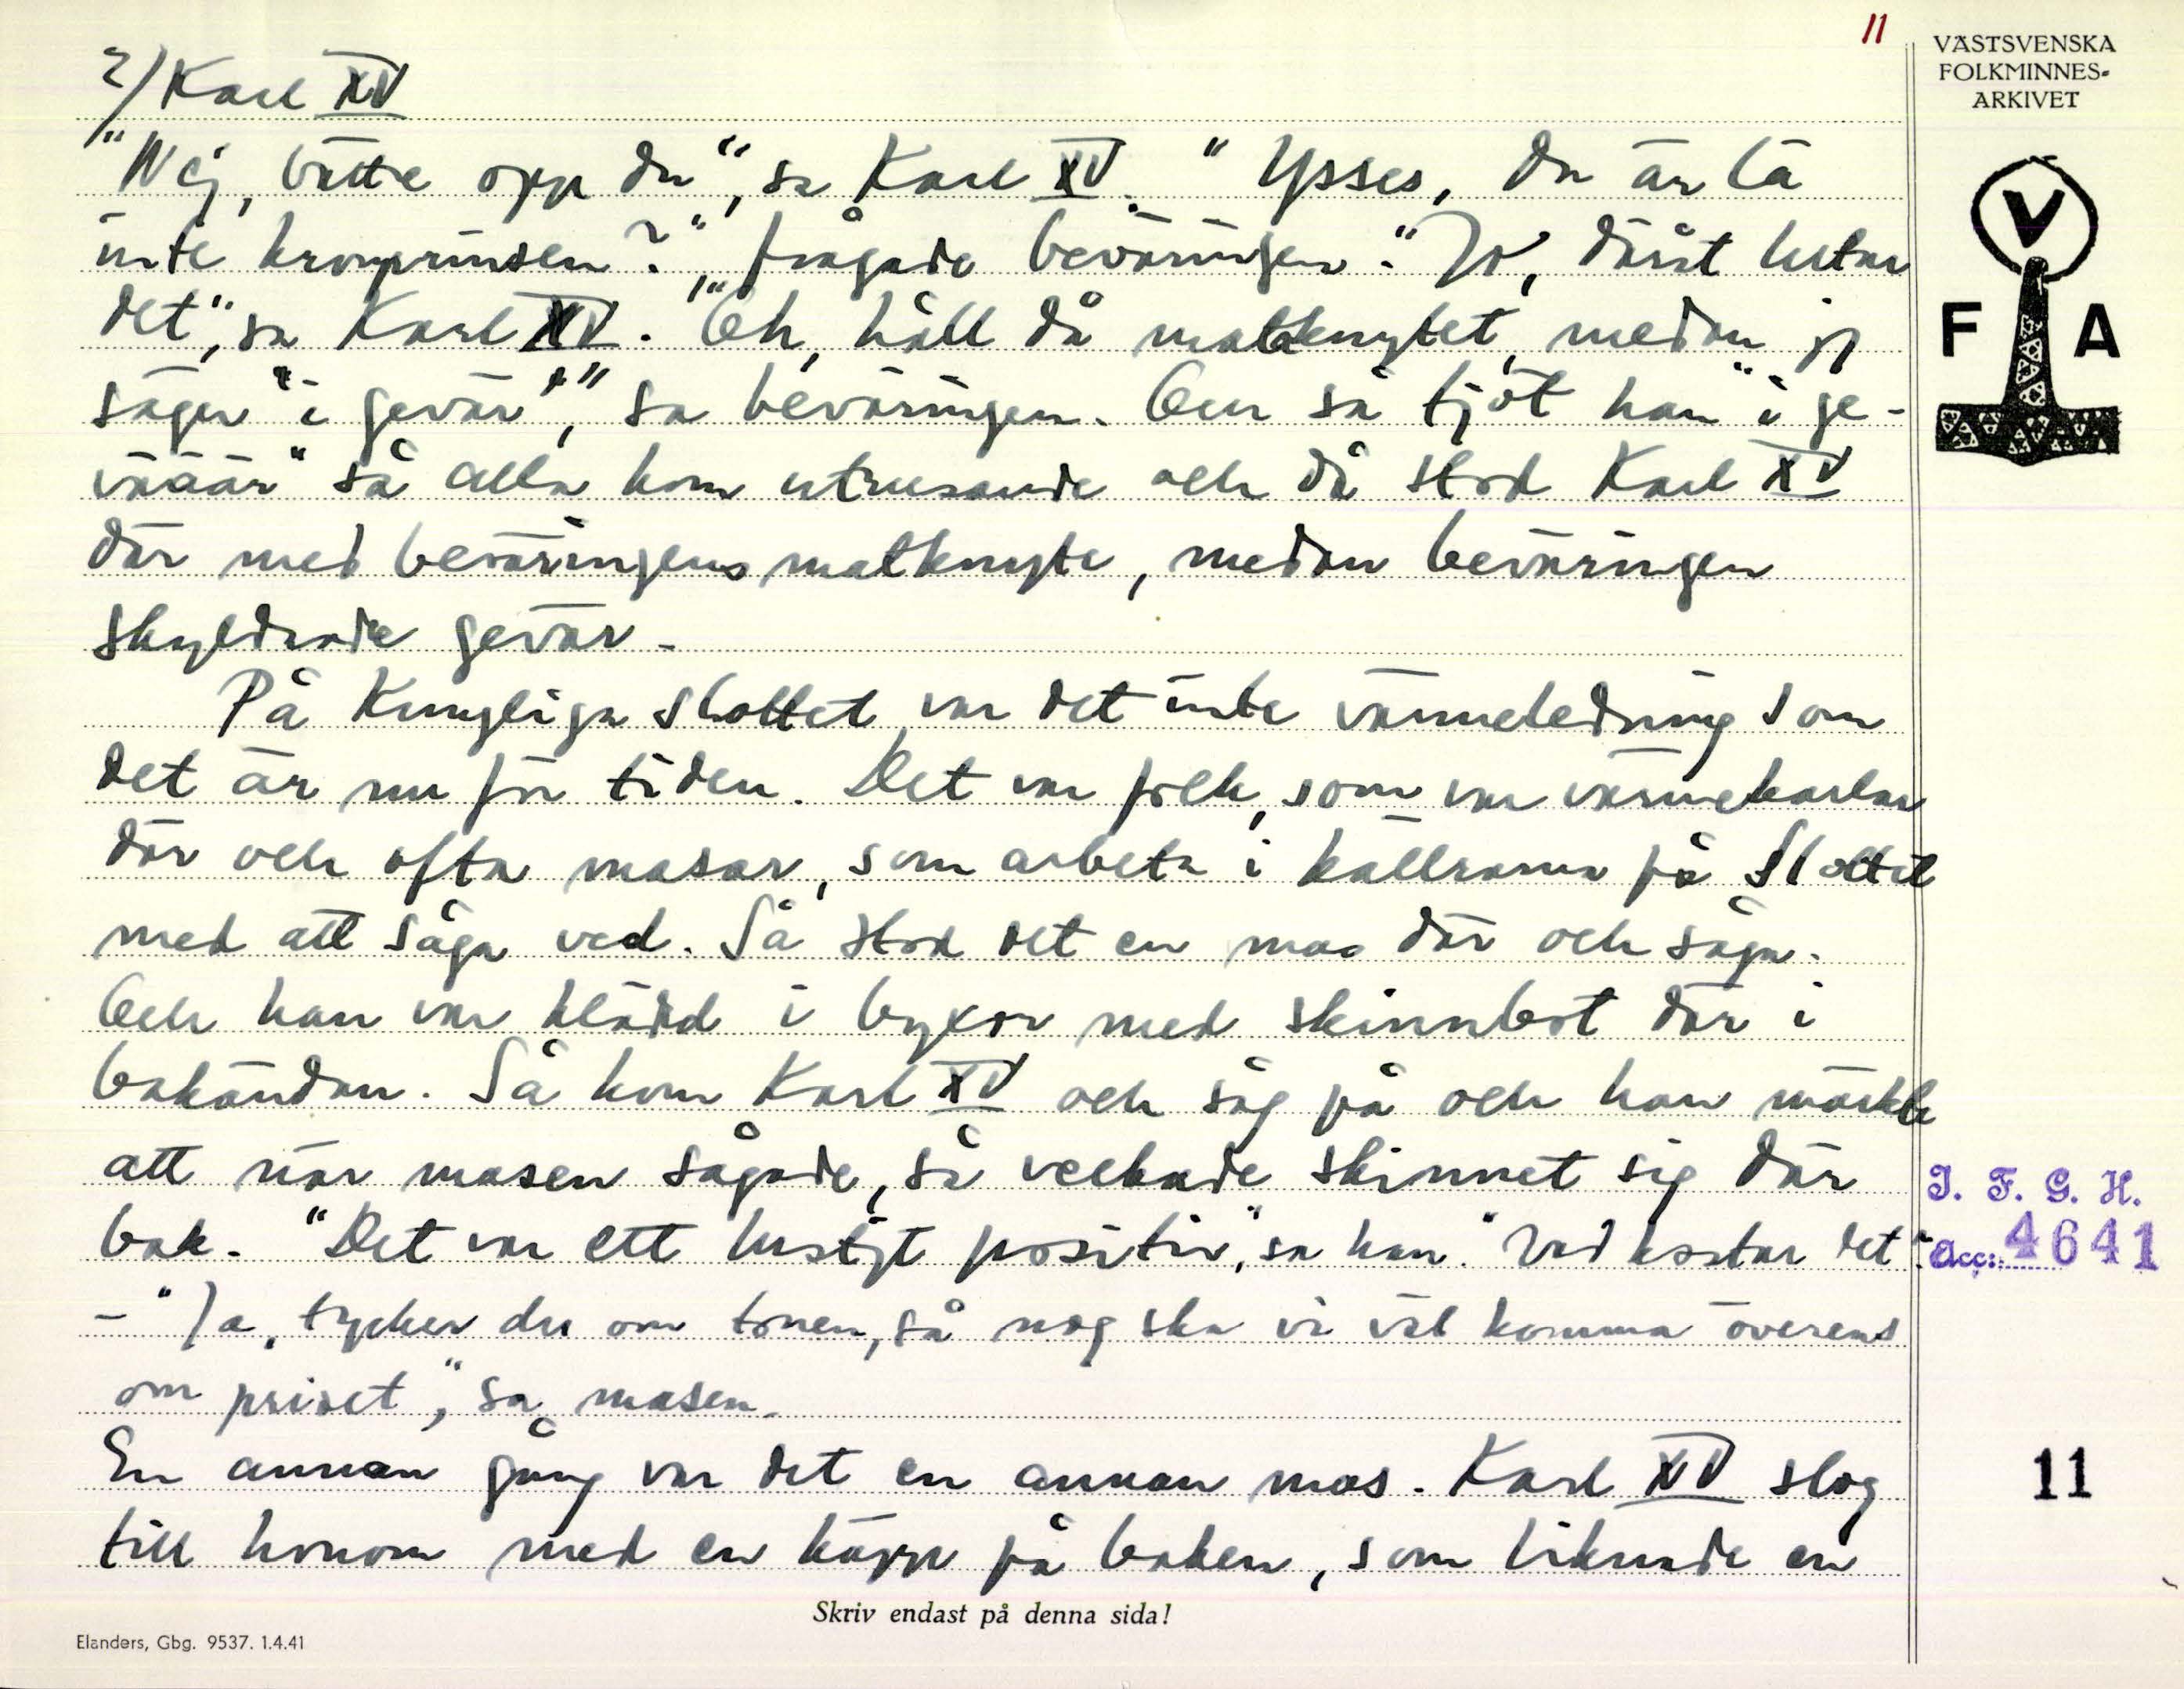 11
VÄSTSVENSKA
FOLKMINNES-
ARKIVET
2) Karl XV
"Nej, bättre opp du", sa Karl XV. "Ysses, du är lä
inte kronprinsen?", frågade beväringen. "Jo, däråt lutar
det", sa Karl XV. "Oh, håll då matknytet, medan jag
säger "i gevär"", sa beväringen. Och så tjöt han "i ge-
vääär" så alla kom utrusande och då stod Karl XV
där med beväringens matknyte, medan beväringen
skyldrade gevär.
På Kungliga slottet var det inte värmeledning som
det är nu för tiden. Det var folk, som var värmekarlar
där och ofta masar, som arbeta i källrarna på Slottet
med att såga ved. Så stod det en mas där och såga.
Och han var klädd i byxor med skinnbot där i
bakändan. Så kom Karl XV och såg på och han märkte
att när masen sågade, så veckade skinnet sig där
bak. "Det var ett lustigt positiv", sa han. "Vad kostar det".
- "Ja, tycker du om tonen, så nog ska vi väl komma överens
om priset", sa masen.
En annan gång var det en annan mas. Karl XV slog
till honom med en käpp på baken, som liknade en
V
F A
I. F. G. H.
Acc: 4641
11
Skriv endast på denna sida!
Elanders, Gbg. 9537. 1.4.41